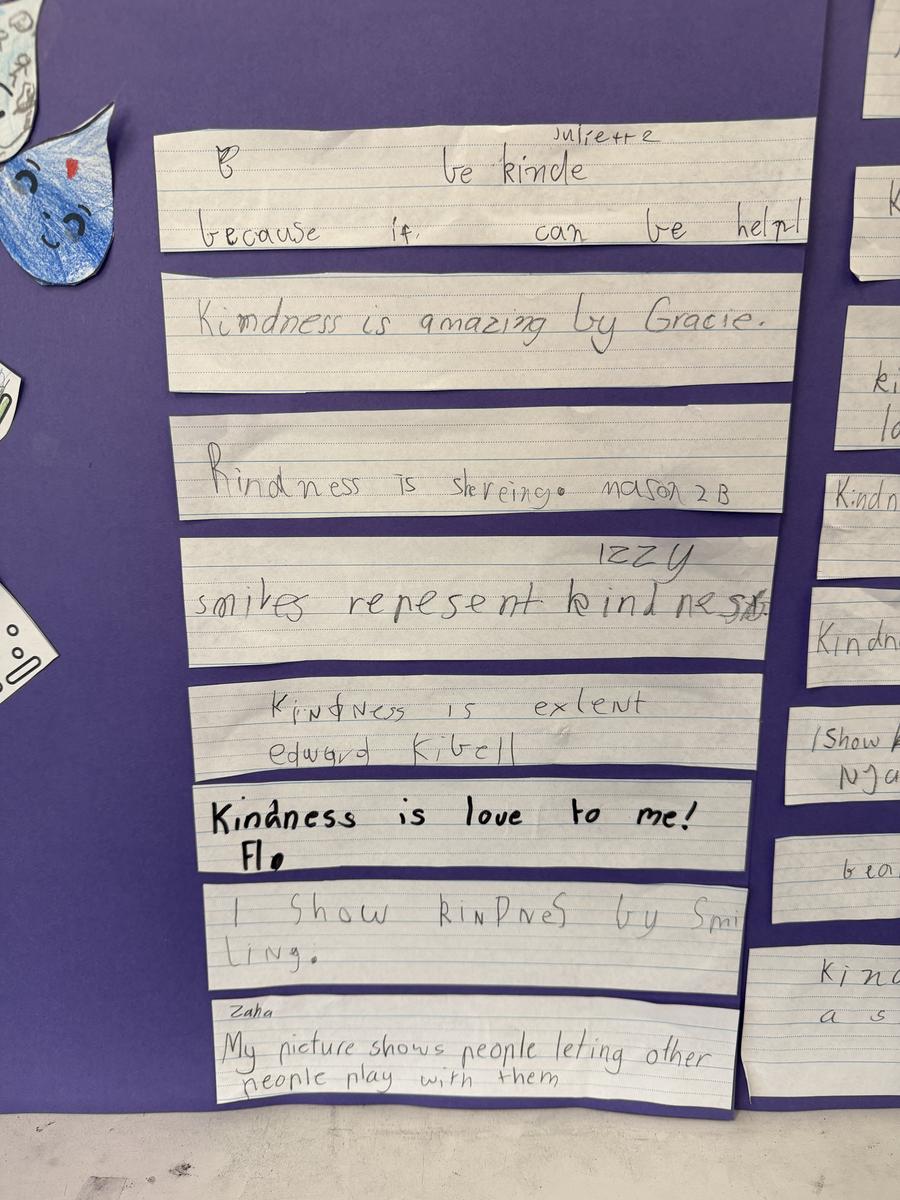 Juliette
be kinde
because it can be help!
Kimdness is amazing by Gracie.
Kindness is shereing. mason 2B
IZZY
smiles repesent kindness.
Kindness is extent
edward Kibell
Kindness is love to me!
Flo
I Show KiNDNeS by Smi
Ling.
Zaha
My picture shows people leting other
people play with them
K
ki
lo
Kindn
Kindn
I Show k
Nja
bea
Kind
a s